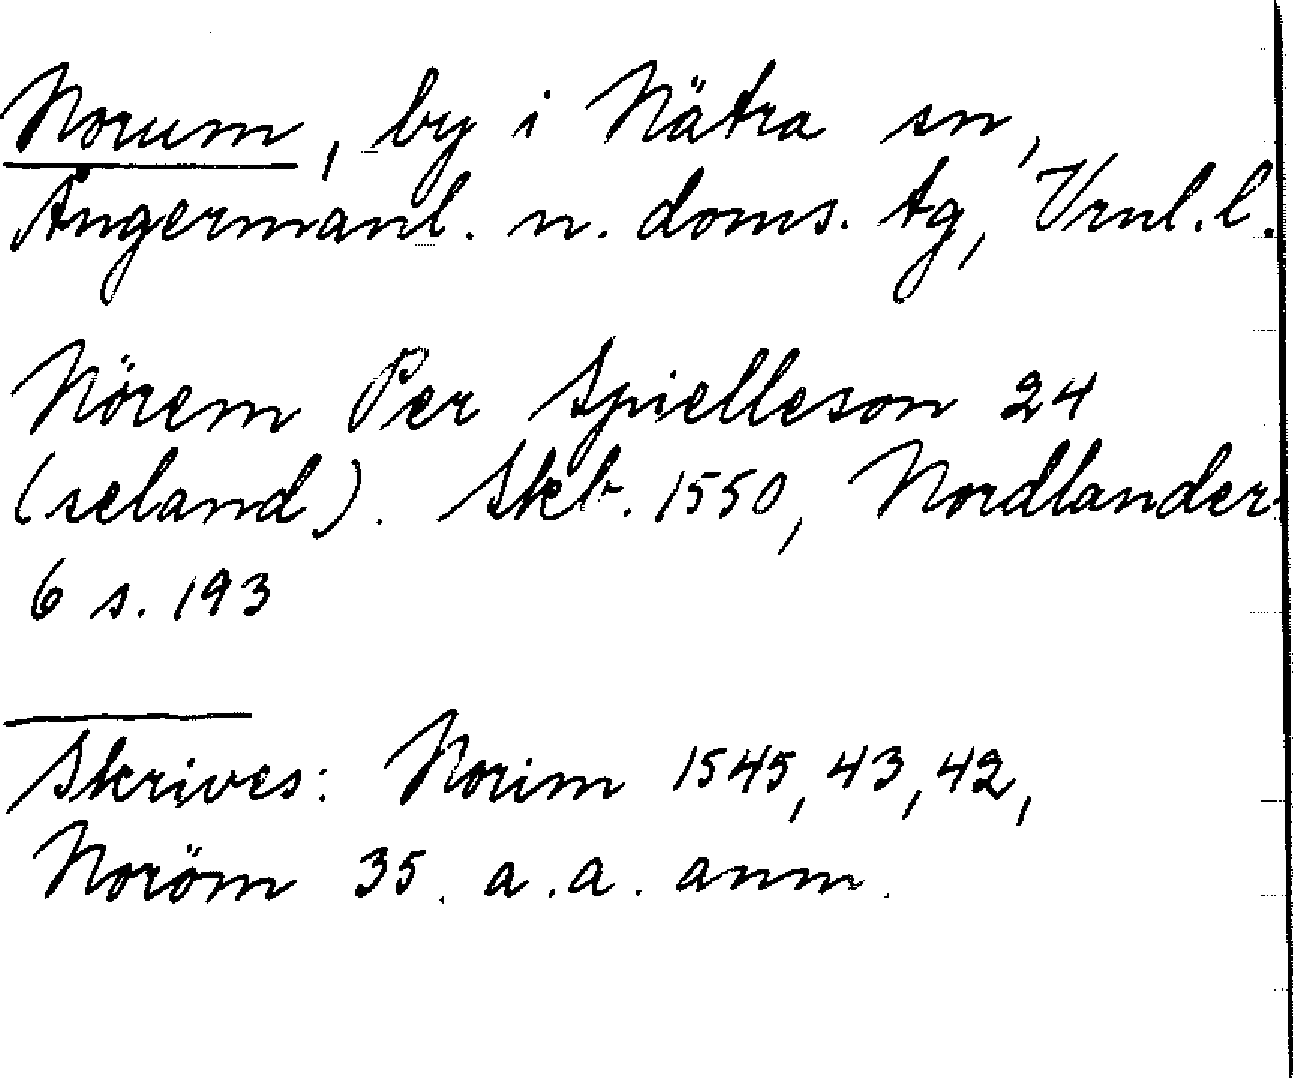 Norum, by i Nätra sn,
Ångermanl. n. doms. tg, Vrnl. l.
Nörem Per Spielleson 24
(seland). Skb. 1550, Nordlander
6 s. 193
Skrives: Norim 1545, 43, 42,
Noröm 35. a. a. anm.